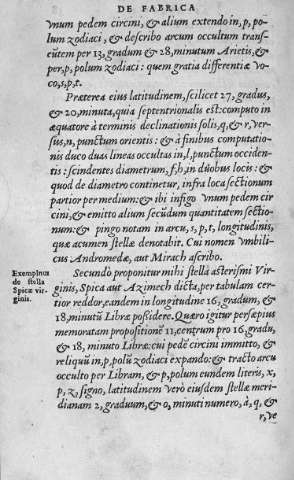 DE FABRICA
vnum pedem circini, & alium extendo in, p, po-
lum zodiaci, & describo arcum occultum trans-
eūtem per 13, gradum & 28, minutum Arietis, &
per, p, polum zodiaci: quem gratia differentiæ vo-
co, s, p, t.
Præterea eius latitudinem, scilicet 27, gradus,
& 20, minuta, quia septentrionalis est: computo in
æquatore à terminis declinationis solis, q, & r, ver-
sus, n, punctum orientis: & à finibus computatio-
nis duco duas lineas occultas in, l, punctum occiden-
tis: scindentes diametrum, f, h, in duobus locis: &
quod de diametro continetur, infra loca sectionum
partior per medium: & ibi infigo vnum pedem cir-
cini, & emitto alium secūdum quantitatem sectio-
num: & pingo notam in arcu, s, p, t, longitudinis,
quæ acumen stellæ denotabit. Cui nomen Vmbili-
cus Andromedæ, aut Mirach ascribo.
Exemplum
de stella
Spica vir-
ginis.
Secundò proponitur mihi stella asterismi Vir-
ginis, Spica aut Azimech dicta, per tabulam cer-
tior reddor, eandem in longitudine 16, gradum, &
18, minutū Libræ possidere. Quæro igitur per sæpius
memoratam propositionē 11, centrum pro 16, gradu,
& 18, minuto Libræ: cui pedē circini immitto, &
reliquū in, p, polū zodiaci expando: & tracto arcu
occulto per Libram, & p, polum eundem literis, x,
p, z, signo, latitudinem verò eiusdem stellæ meri-
dianam 2, graduum, & 0, minuti numero, à, q, &
r, ve